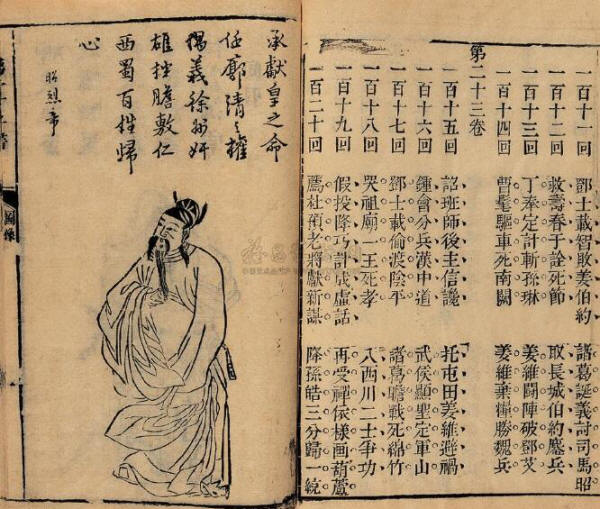 一百十一回 鄧士載智敗姜伯約 諸葛誕義討司馬昭
一百十二回 救壽春于詮死節 取長城伯約鏖兵
一百十三回 丁奉定計斬孫琳 姜維鬪陣破鄧艾
一百十四回 曹髦驅車死南闕 姜維棄糧勝魏兵
第二十三卷
一百十五回 詔班師後主信讒 托屯田姜維避禍
一百十六回 鍾會分兵漢中道 武侯顯聖定軍山
一百十七回 鄧士載偷渡陰平 諸葛瞻戰死綿竹
一百十八回 哭祖廟一王死孝 入西川二士爭功
一百十九回 假投降巧計成虛話 再受禪依樣画葫蘆
一百二十回 薦杜預老將獻新謀 降孫皓三分歸一統
承獻皇之命
任鄺清之權
獨義徐
雄挫膽敷仁
西蜀百姓歸
心
昭烈帝
圖像